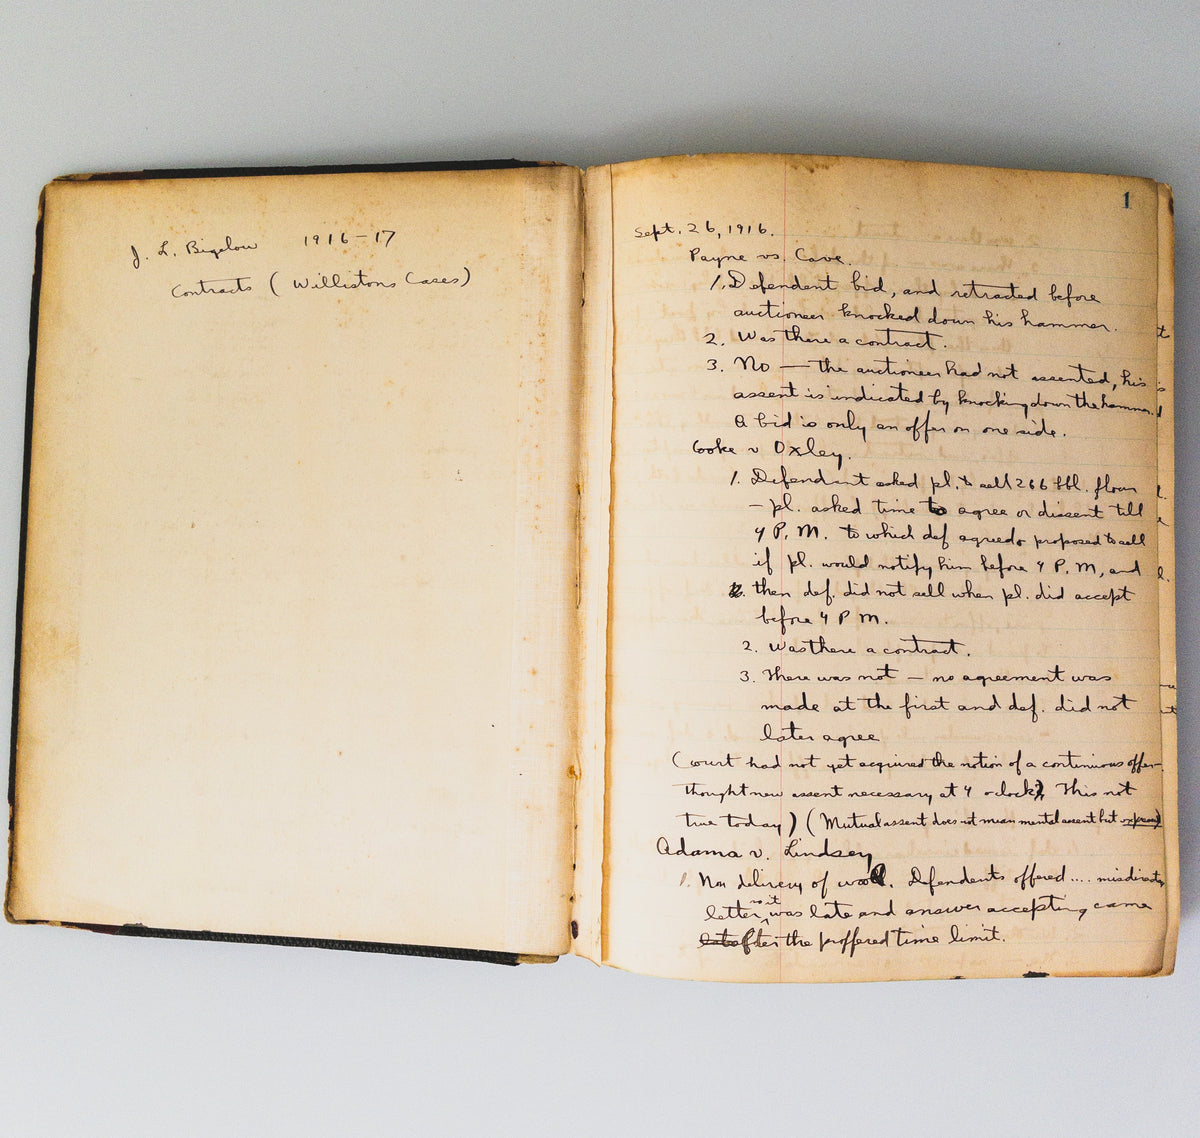 J. L. Bigelow 1916-17
Contracts (Willistons Cases)
1
Sept. 26, 1916.
Payne vs. Cave.
1. Defendent bid, and retracted before
auctioneer knocked down his hammer.
2. Was there a contract.
3. No — the auctioneer had not assented, his
assent is indicated by knocking down the hammer.
A bid is only an offer on one side.
Cooke v Oxley.
1. Defendant asked pl. to sell 266 bbl. flour
- pl. asked time to agree or dissent till
4 P.M. to which def agreed & proposed to sell
if pl. would notify him before 4 P.M, and
then def. did not sell when pl. did accept
before 4 P M.
2. Was there a contract.
3. There was not — no agreement was
made at the first and def. did not
later agree
(Court had not yet acquired the notion of a continuous offer-
thought new assent necessary at 4 oclock). This not
true today) (Mutual assent does not mean mental assent but expressed)
Adams v. Lindsey
1. Non delivery of wool. Defendents offered .... misdirected
letter so it was late and answer accepting came
after the proffered time limit.